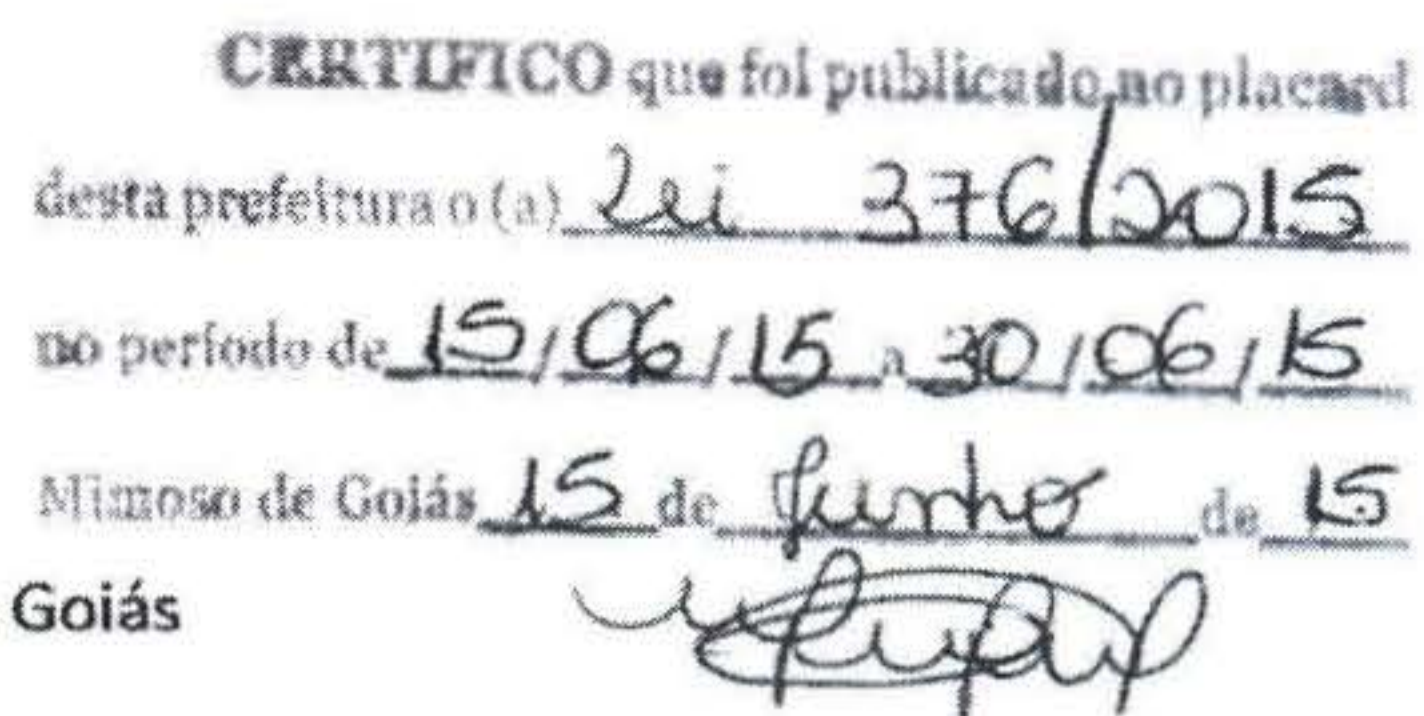 CERTIFICO que foi publicado no placard
desta prefeitura o (a) Lei 376/2015
no período de 15/06/15 a 30/06/15
Mimoso de Goiás 15 de Junho de 15
Goiás